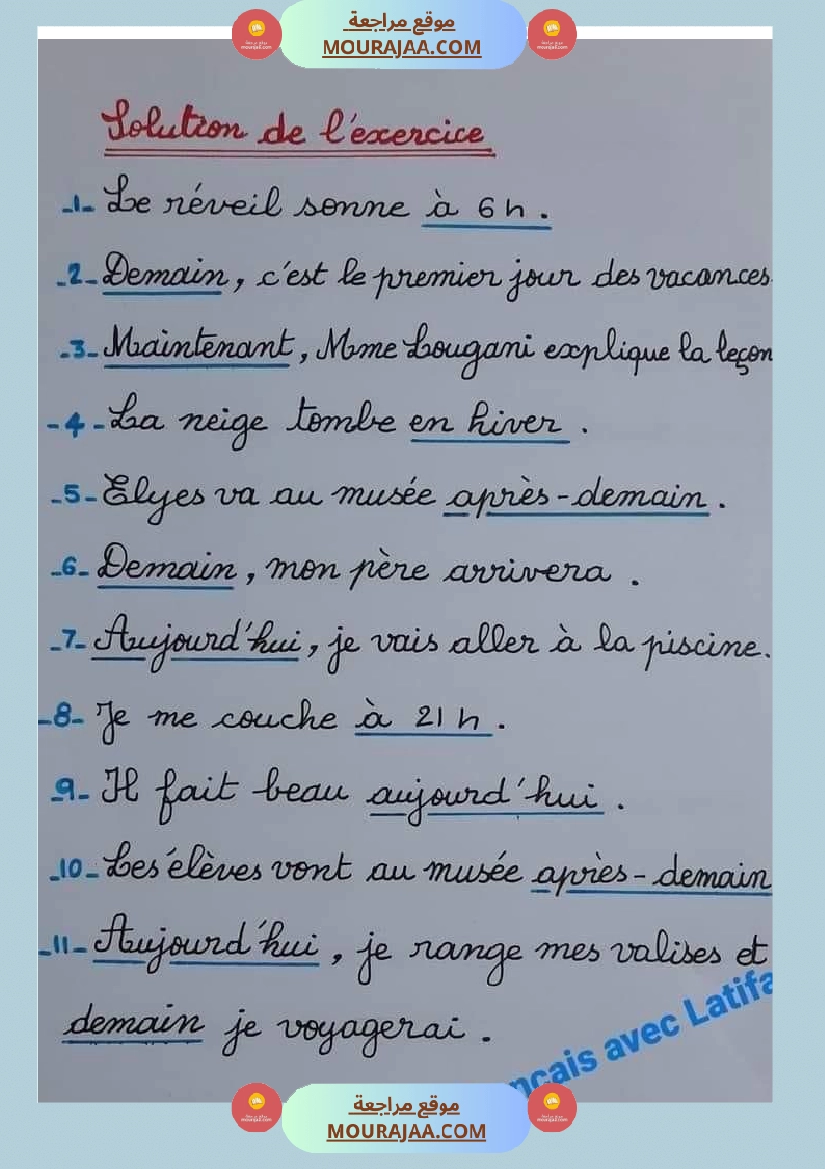 موقع مراجعة
MOURAJAA.COM
Solution de l'exercice
-1- Le réveil sonne à 6 h .
-2- Demain, c'est le premier jour des vacances.
-3- Maintenant, Mme Lougani explique la leçon
-4- La neige tombe en hiver .
-5- Elyes va au musée après-demain .
-6- Demain, mon père arrivera .
-7- Aujourd'hui, je vais aller à la piscine.
-8- Je me couche à 21 h .
-9- Il fait beau aujourd'hui .
-10- Les élèves vont au musée après-demain
-11- Aujourd'hui, je range mes valises et
demain je voyagerai .
nçais avec Latifa
موقع مراجعة
MOURAJAA.COM